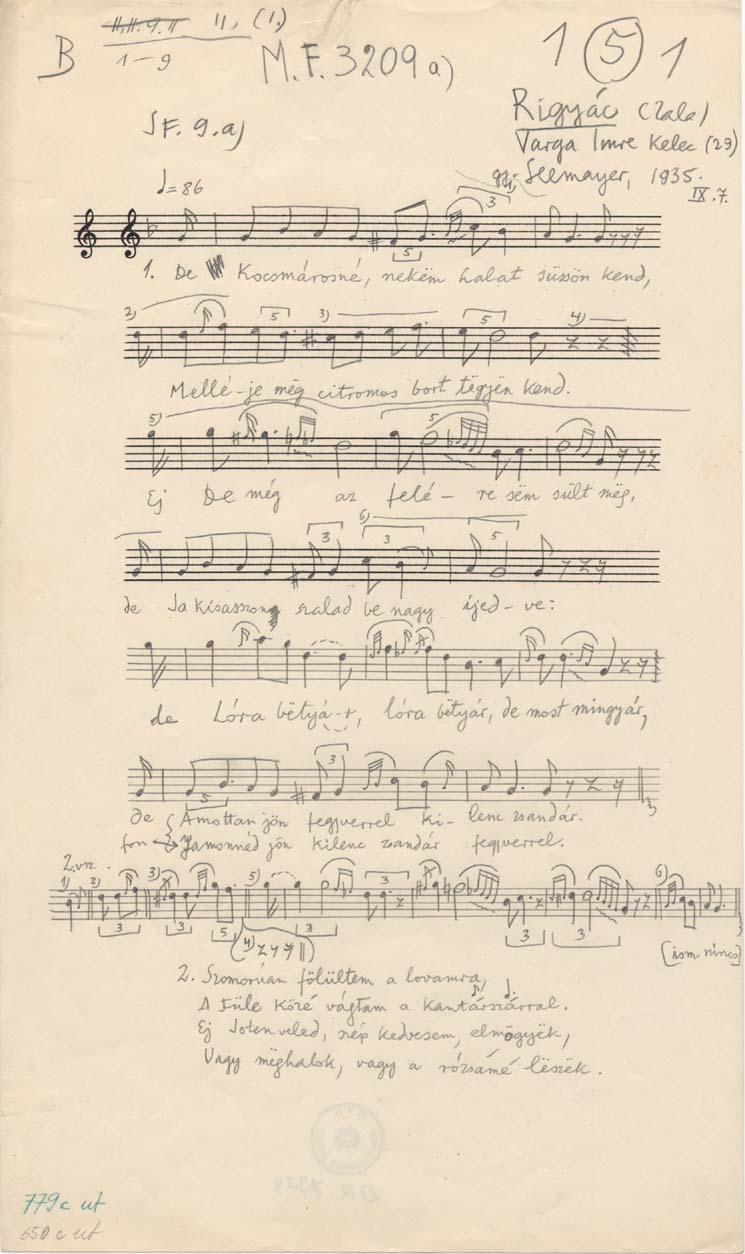 11, (1.)
B
1-9
M.F. 3209 a)
1 5 1
SF. 9.a)
Rigyác (Zala)
Varga Imre Kelec (29)
Gy. Seemayer, 1935.
IX. 7.
♩=86
1. De Kocsmárosné, nekëm halat süssön kend,
2) 3) 4)
Mellé-je még citromos bort tëgyën kend.
5)
Ej De még az felé- re sëm sült mëg,
6)
de Ja kisasszony szalad be nagy ijed-ve:
de Lóra bëtyá-r, lóra bëtyár, de most mingyár,
de Amottan jön fegyverrel ki- lenc zsandár.
fon Jamonnéd jön kilenc zsandár fegyverrel.
2. vsz.
1) 2) 3) 5) 6)
4)
[ism. nincs]
2. Szomorúan fölültem a lovamra,
A Füle közé vágtam a kantárszárral.
Ej Isten veled, szép kedvesem, elmögyëk,
Vagy mëghalok, vagy a rózsámé lëszëk.
779c ut
650 c ut